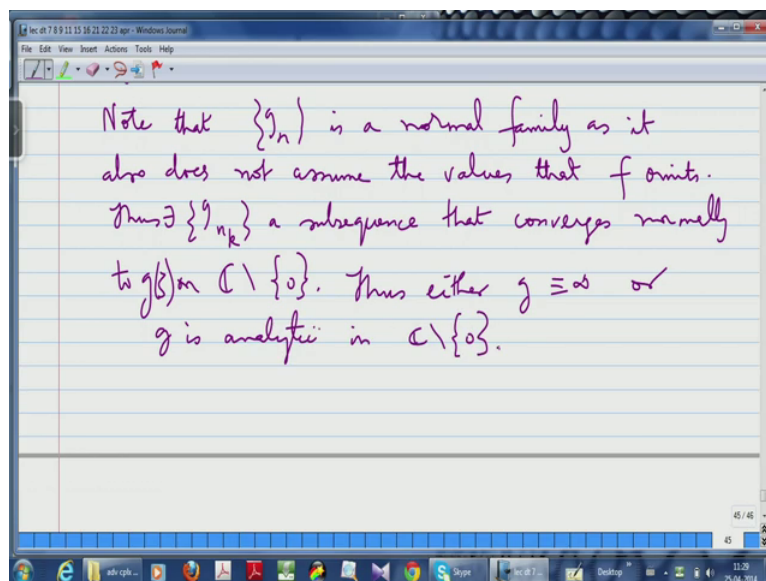 lec dt 7 8 9 11 15 16 21 22 23 apr - Windows Journal
File Edit View Insert Actions Tools Help
Note that {g_n} is a normal family as it
also does not assume the values that f omits.
Thus ∃ {g_{n_k}} a subsequence that converges normally
to g(z) on ℂ \ {0}. Thus either g ≡ ∞ or
g is analytic in ℂ \ {0}.
45 / 46
45
adv cplx... Skype lec dt 7 ... Desktop 11:29
25-04-2014